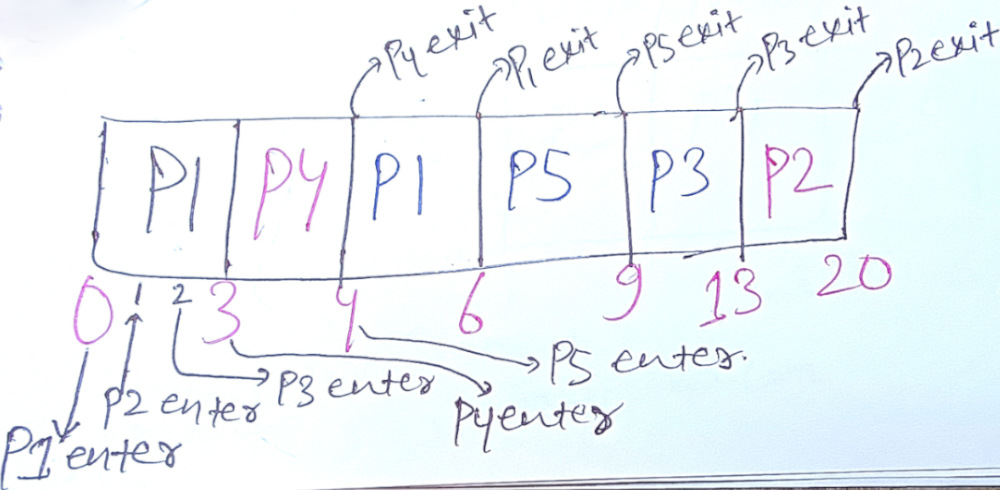 P4 exit P1 exit P5 exit P3 exit P2 exit
P1 P4 P1 P5 P3 P2
0 1 2 3 4 6 9 13 20
P5 enter.
P2 enter P3 enter
P4 enter
P1 enter